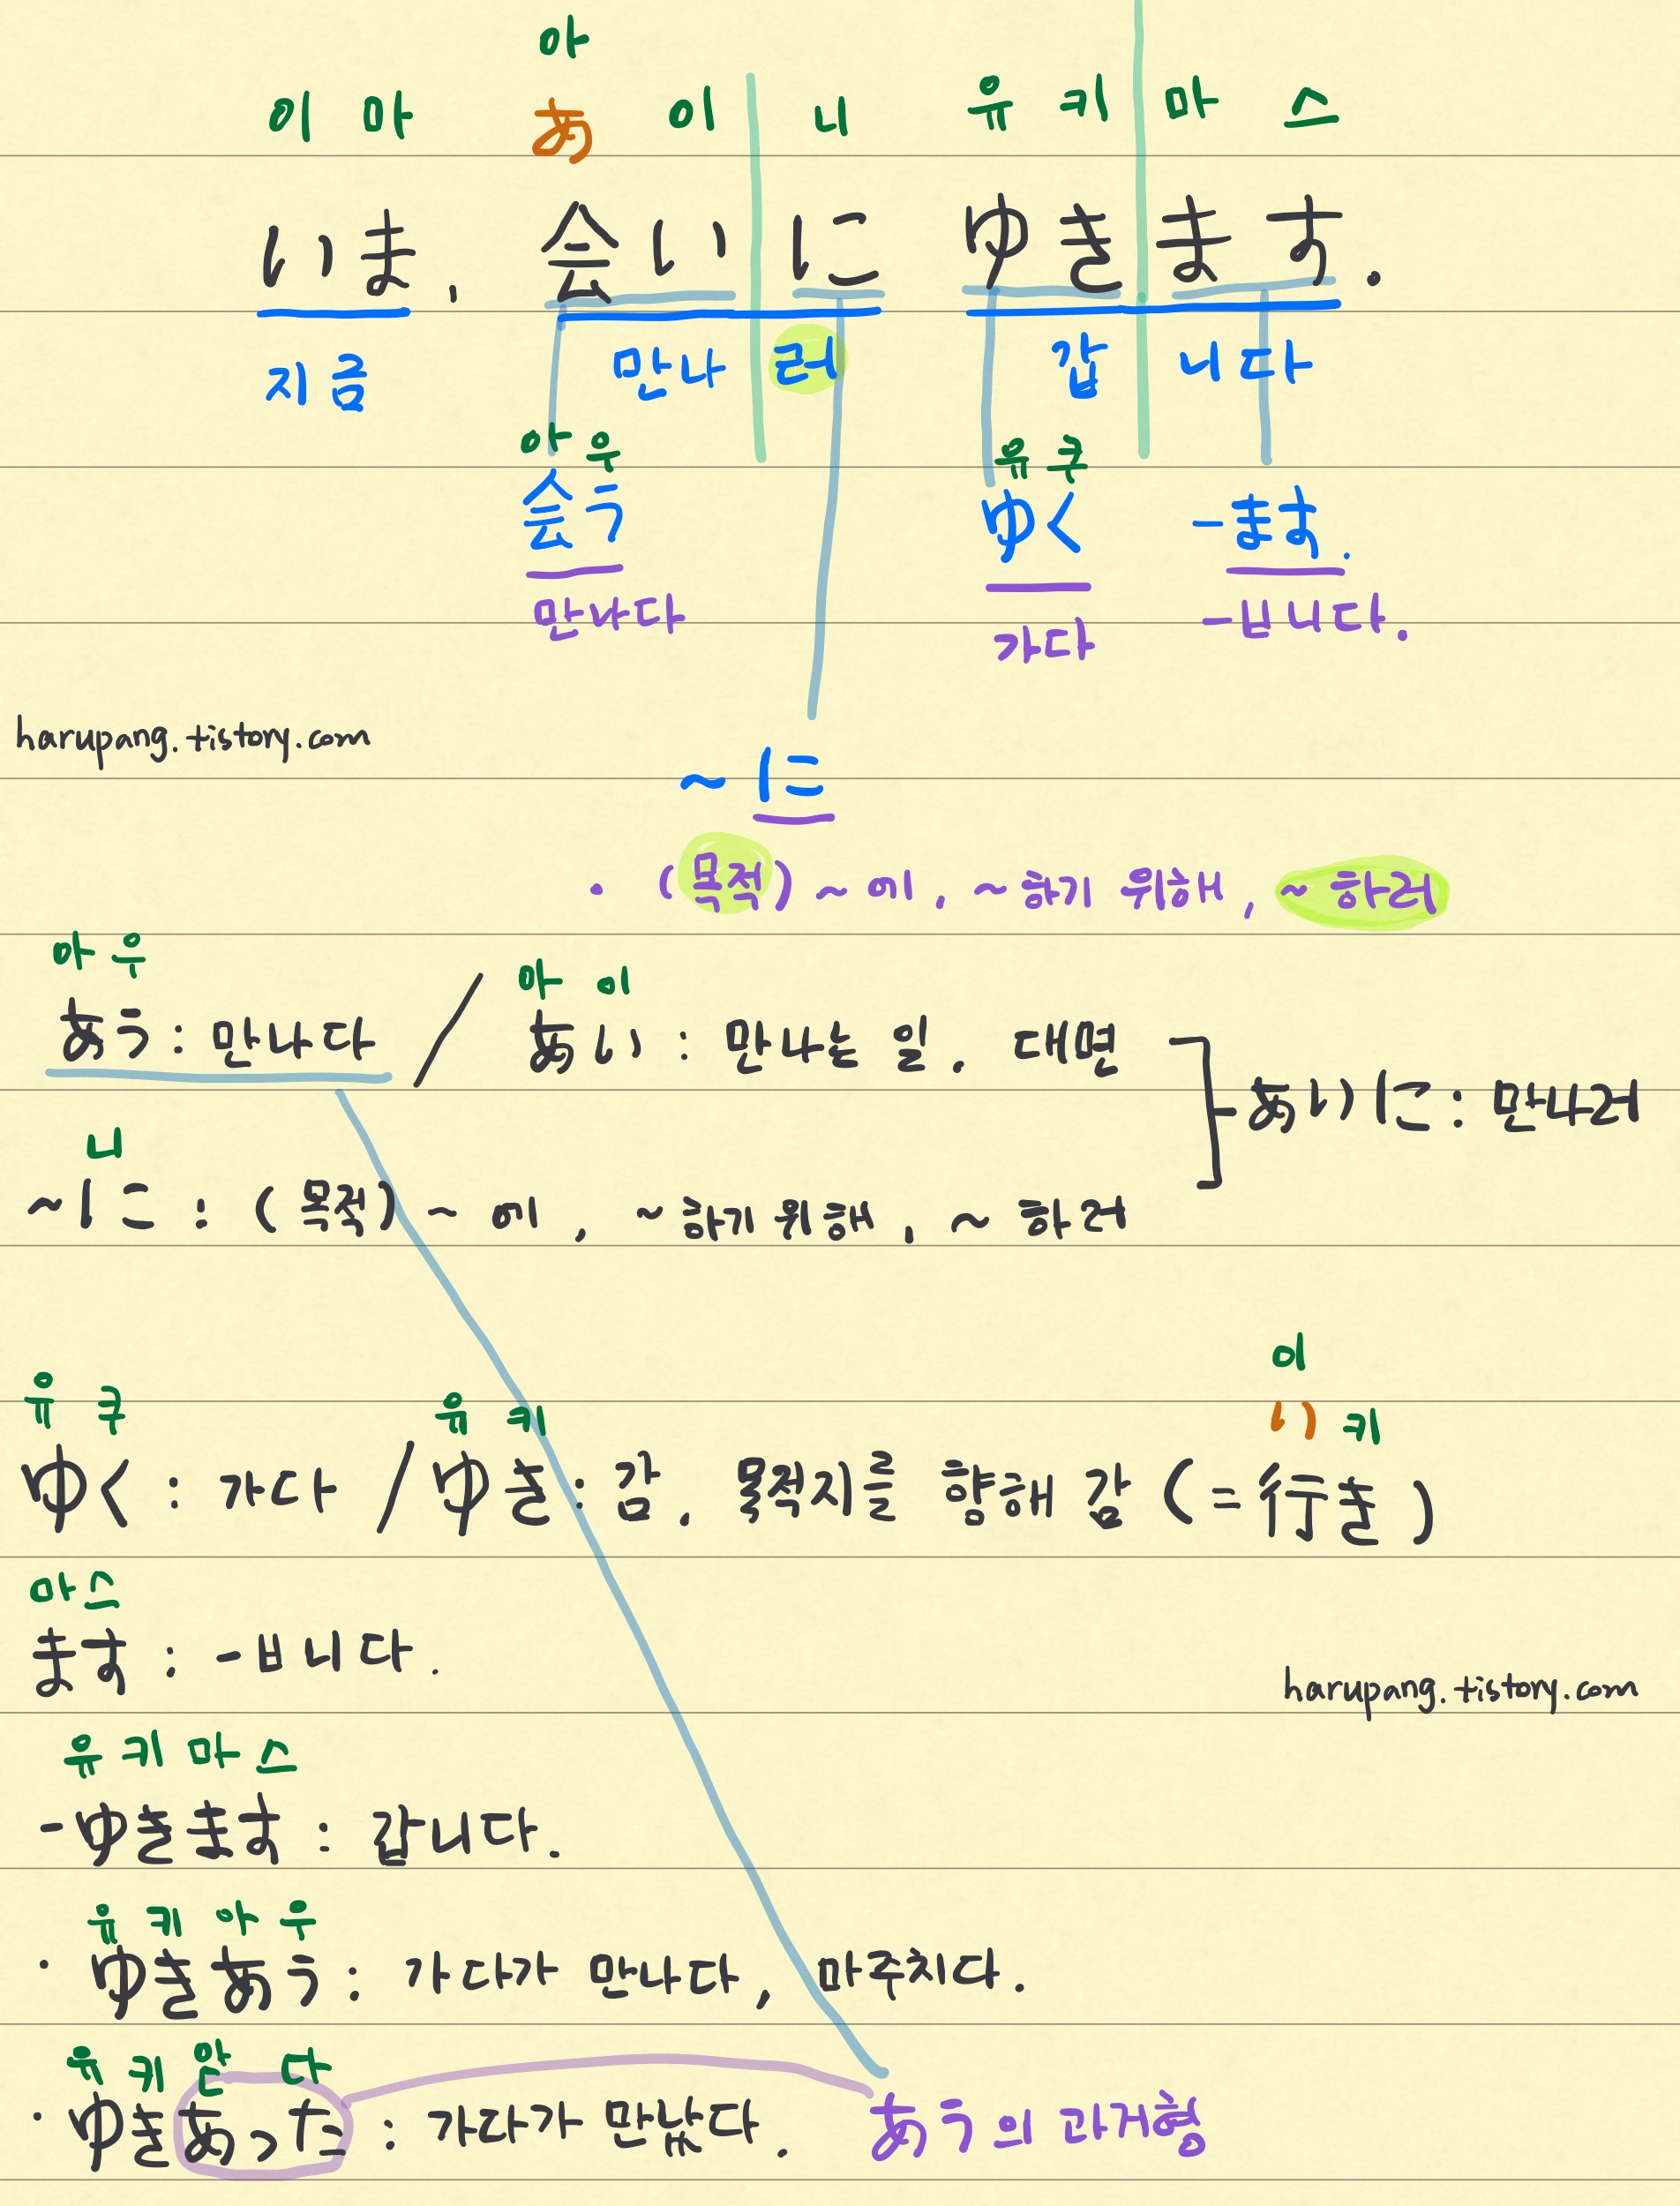 아
이 마 あ 이 니 유 키 마 스
いま、会いに ゆきます.
지금 만나러 갑니다
아우 유쿠
会う ゆく -ます.
만나다 가다 -ㅂ니다.
harupang.tistory.com
~に
· (목적) ~에, ~하기 위해, ~하러
아우 아이
あう : 만나다 / あい : 만나는 일. 대면
あいに : 만나러
니
~に : (목적) ~에, ~하기 위해, ~하러
이
유쿠 유키 い키
ゆく : 가다 / ゆき : 감. 목적지를 향해 감 (=行き)
마스
ます : -ㅂ니다.
harupang.tistory.com
유키마스
-ゆきます : 갑니다.
유키아우
· ゆきあう : 가다가 만나다, 마주치다.
유키앋다
· ゆきあった : 가다가 만났다. あう의 과거형